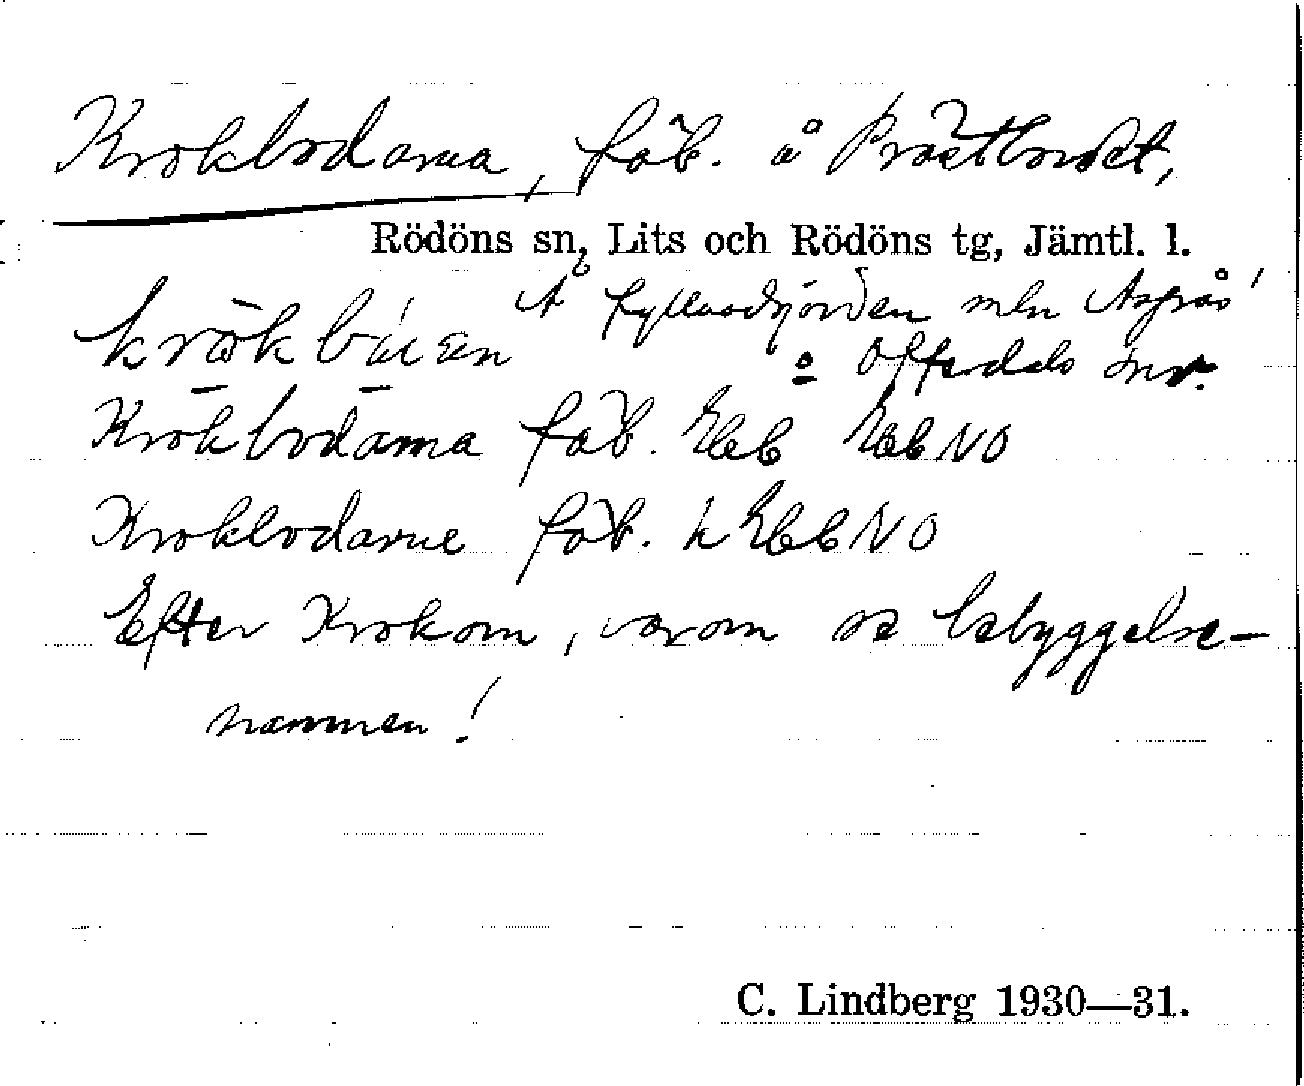 Krokbodarna, fäb. å Prästbordet,
Rödöns sn, Lits och Rödöns tg, Jämtl. l.
Å fyllnadsjorden mln Aspås
o Offerdals snr.
Krokbodarna fäb. Eb EbNO
Krokbodarne fäb. h EbNO
Efter Krokom, varom se bebyggelse-
namnen!
C. Lindberg 1930—31.